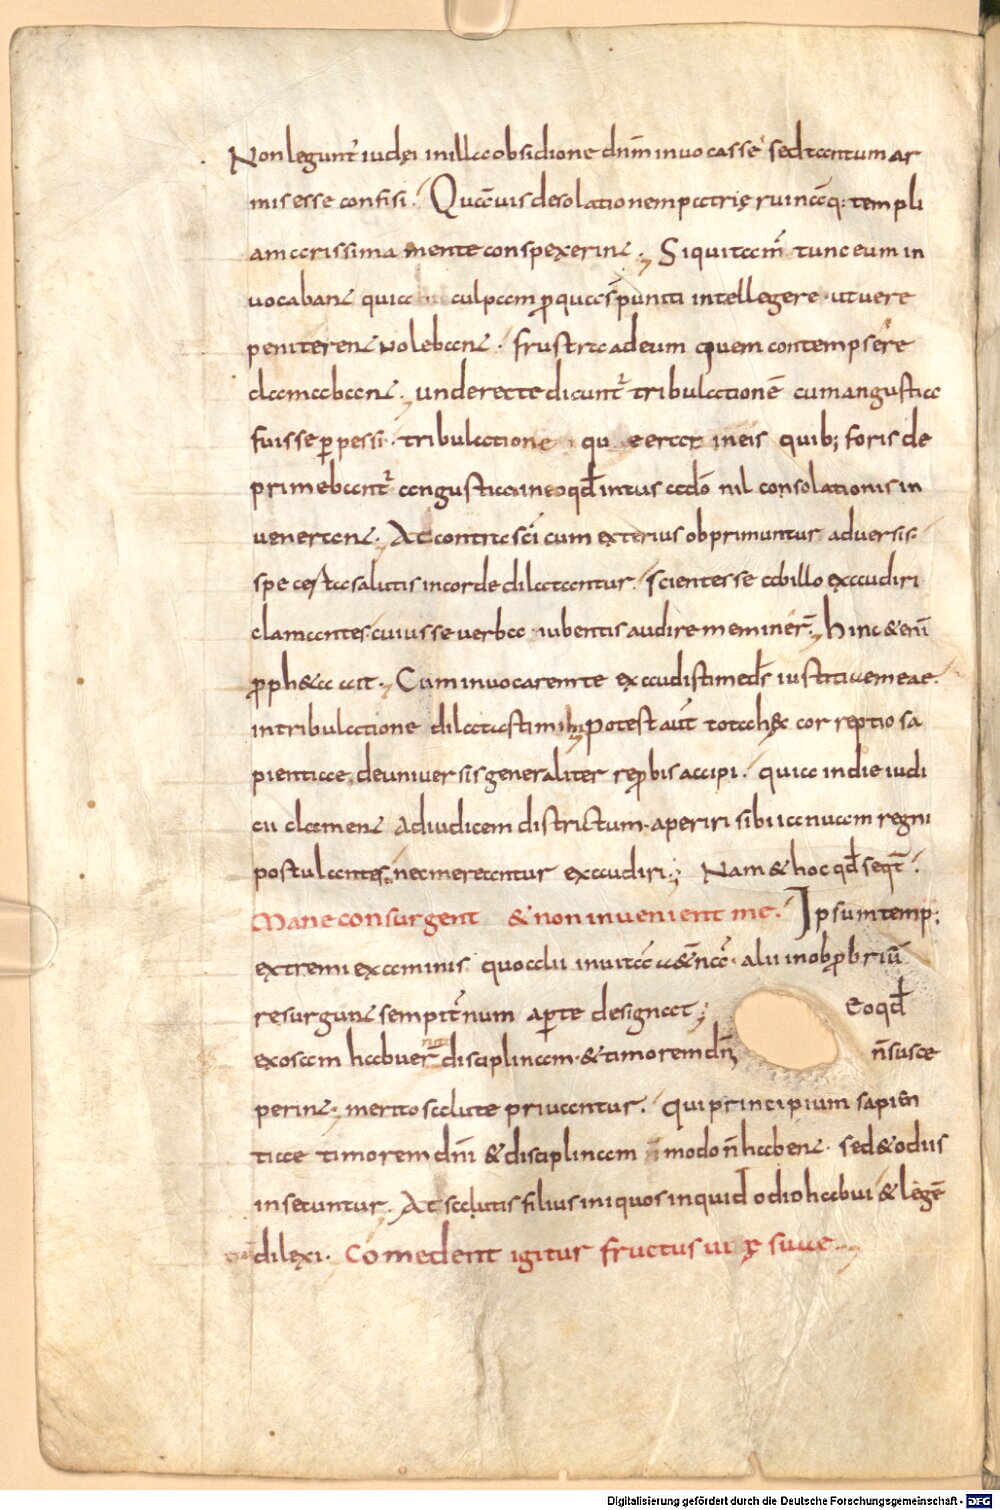 Non legunt̄ iudęi in illa obsidione dn̄m inuocasse sed tantum ar
mis esse confisi. Quāuis desolationem patrię ruināq: templi
amarissima mente conspexerint; Si qui tam̄ tunc eum in
uocabant quia culpam ꝑ quā s̄ puniti intellegere ut uere
peniterent nolebant. frustra ad eum quem contempsere
clamabant; unde recte dicunt̄ tribulationē cum angustia
fuisse ꝑpessi. tribulatione quę erat in eis quib; foris de
primebant̄ angustia in eo qđ intus a dō nil consolationis in
uenerant; At contra sc̄i cum exterius obprimuntur aduersis.
spe certa salutis in corde dilatantur. scientes se ab illo exaudiri
clamantes. cuius se uerba iubentis audire meminer̄; Hinc & enī
ꝓph&a ait. Cum inuocarem te exaudisti me ds̄ iustitiae meae.
in tribulatione dilatasti mihi; Potest aut̄ tota hęc correptio sa
pientiae, de uniuersis generaliter reꝓbis accipi. quia in die iudi
cii clament ad iudicem districtum. aperiri sibi ianuam regni
postulantes, nec merentur exaudiri; Nam & hoc qđ seqt̄.
Mane consurgent & non inuenient me. Ipsum temp;
extremi examinis quo alii in uitā aet̄nā. alii in obꝓbriū
resurgunt sempit̄num aꝑte designat; Eo qđ
exosam habuer̄ disciplinam. & timorem dn̄i n̄ susce
perint; merito salute priuantur. qui principium sapien
tiae timorem dn̄i & disciplinam n̄ modo n̄ habent. sed & odiis
insecuntur. At salutis filius iniquos inquid odio habui & legē
dilexi. Comedent igitur fructus uię suae.